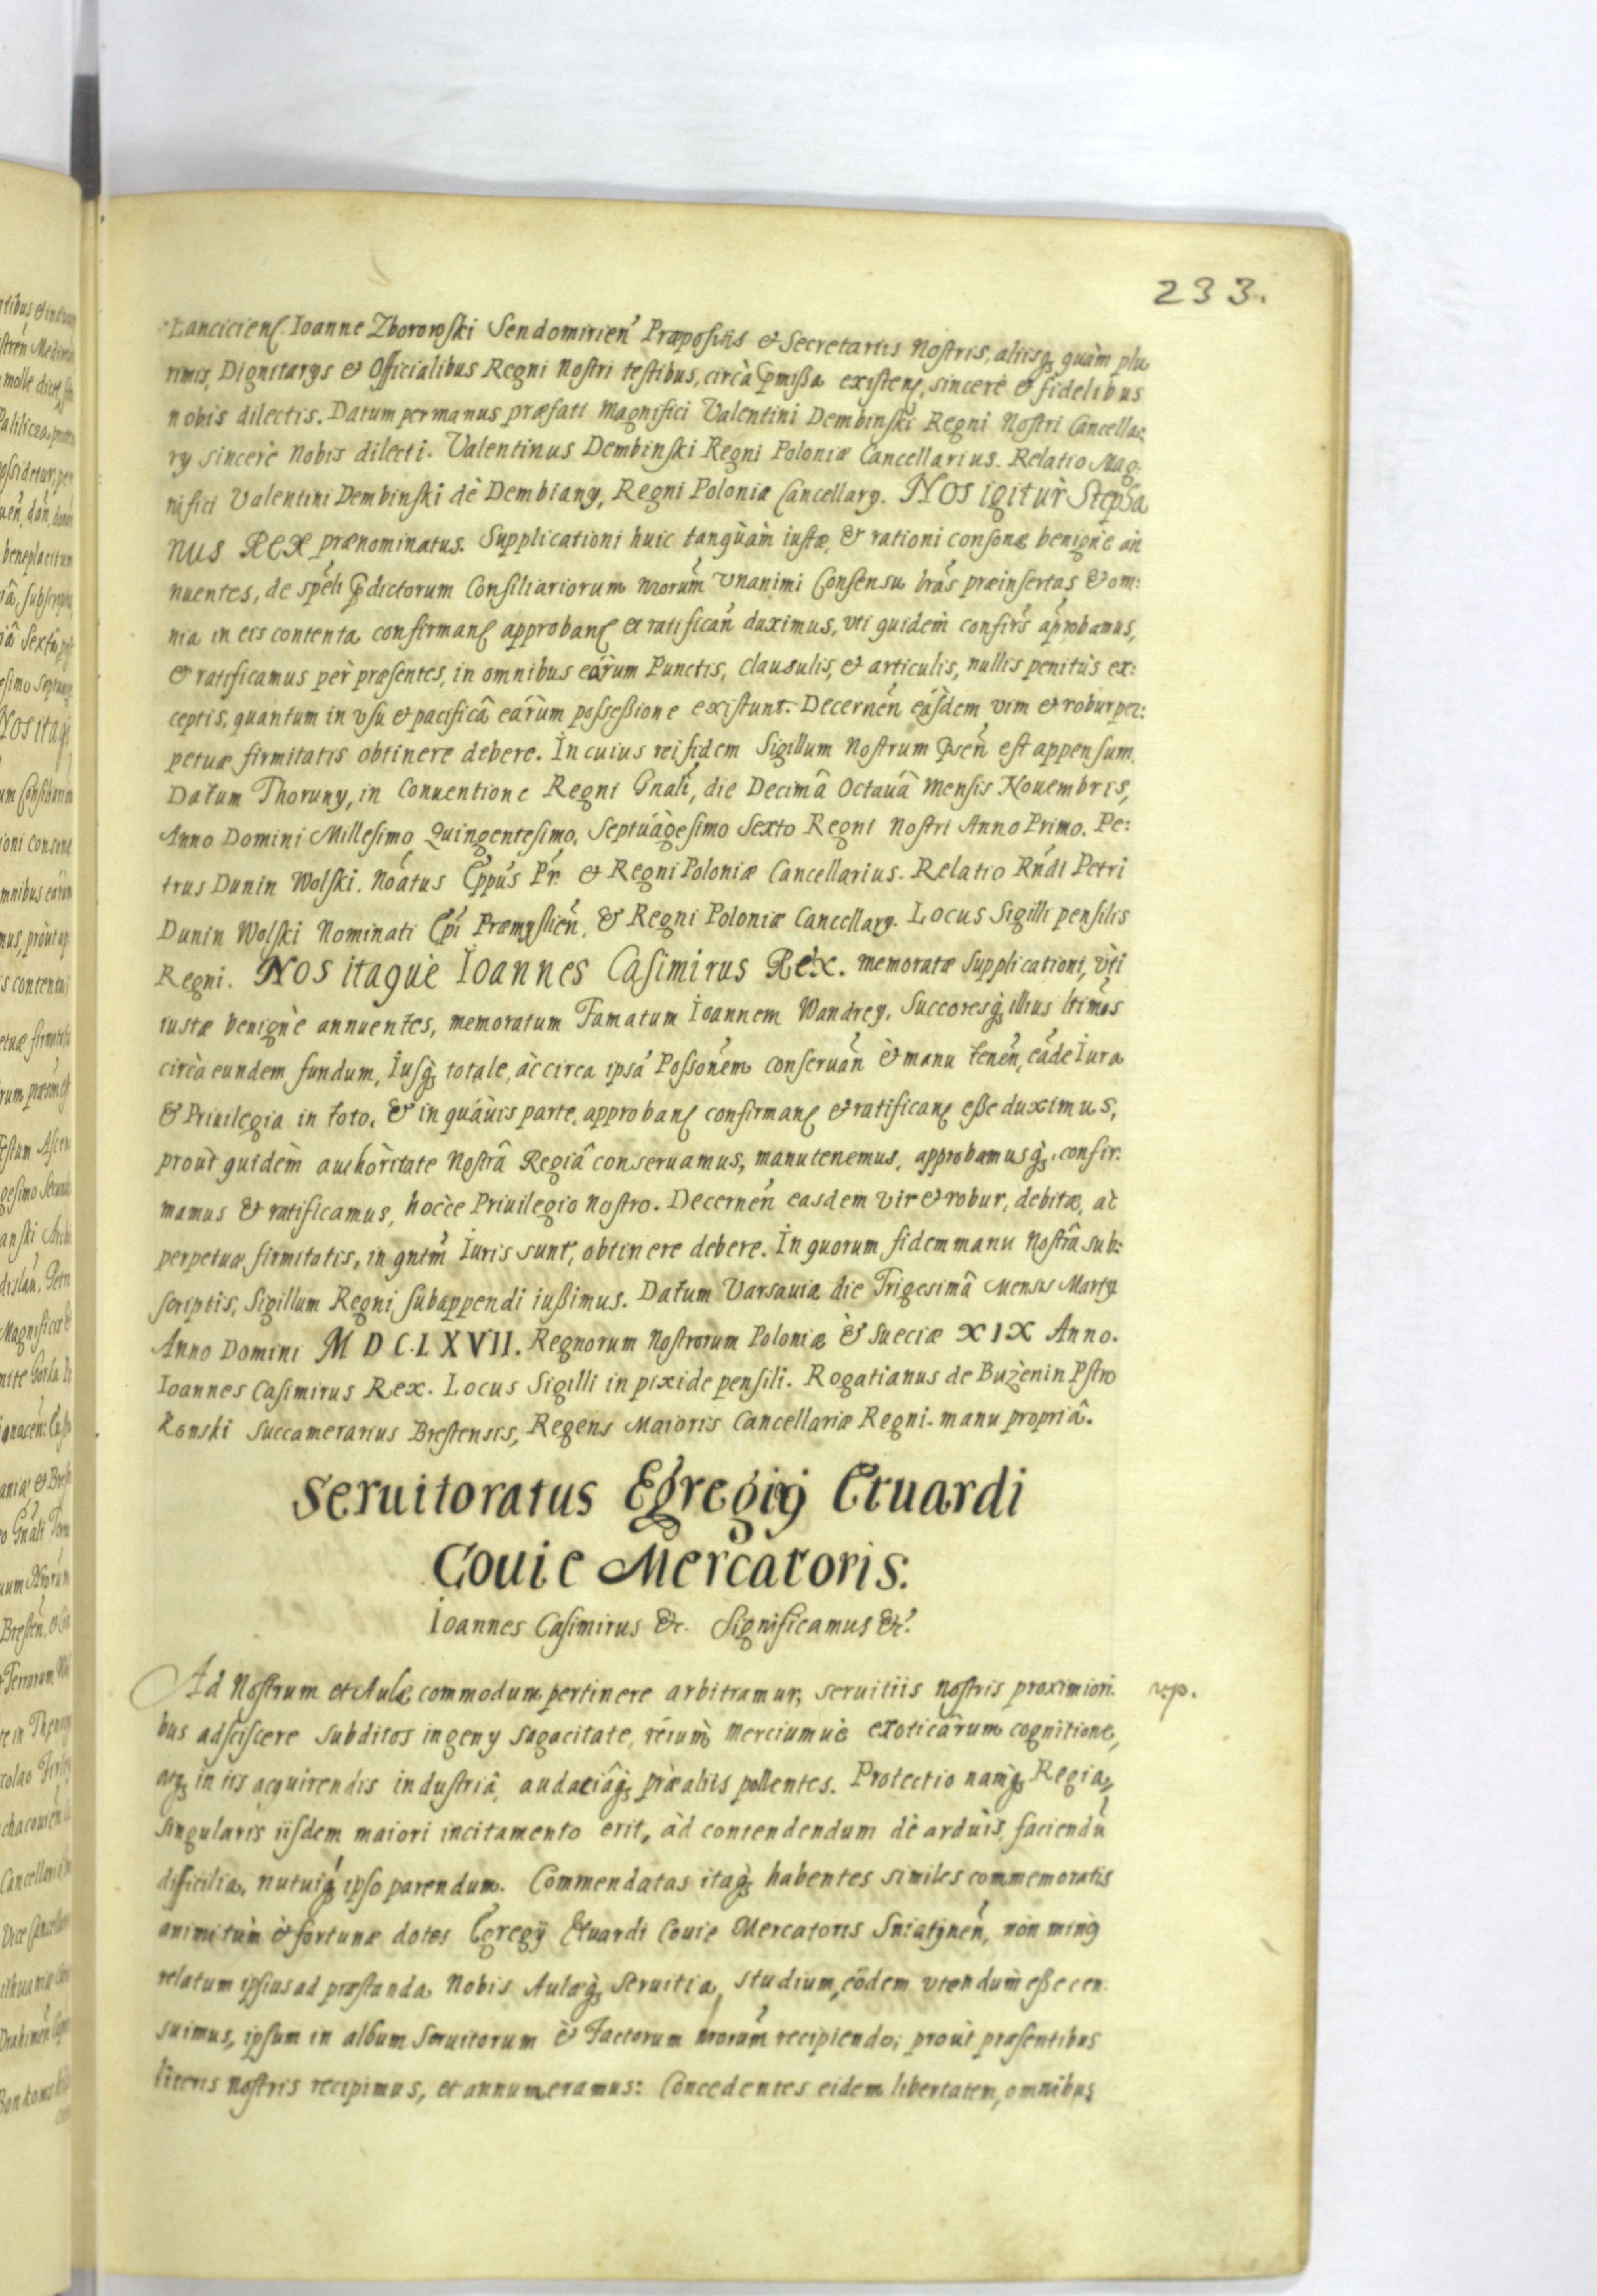 233.
Lancicien. Ioanne Zborowski Sendomirien Præpositis et Secretariis Nostris, aliisq quàm plu
rimis, Dignitarys et Officialibus Regni Nostri testibus, circà pmißa existen, sincerè et fidelibus
nobis dilectis. Datum per manus præfati Magnifici Valentini Dembinski Regni Nostri Cancella:
ry sincerè Nobis dilecti. Valentinus Dembinski Regni Poloniæ Cancellarius. Relatio Mag:
nifici Valentini Dembinski dè Dembiany, Regni Poloniæ Cancellary. Nos igitùr Stepha
nus Rex prænominatus. Supplicationi huic tanquàm iustæ, & rationi consonæ benignè an
nuentes, de spéli pdictorum Consiliariorum nrorum Vnanimi Consensu lras præinsertas & om:
nia in eis contenta confirman approban et ratifican duximus, vti quidem confirs aprobamus,
& ratificamus pèr præsentes, in omnibus eárum Punctis, clausulis, et articulis, nullis penitùs ex:
ceptis, quantum in vsu et pacificâ eárùm possessione existunt. Decernen eásdem vim et robur per:
petuæ firmitatis obtinere debere. In cuius rei fidem Sigillum Nostrum psen est appensum.
Datum Thoruny, in Conuentione Regni Gnali, die Decimâ Octauâ Mensis Nouembris,
Anno Domini Millesimo Quingentesimo, Septuàgesimo Sexto Regni Nostri Anno Primo. Pe:
trus Dunin Wolski. Noatus Eppus Pr. & Regni Poloniæ Cancellarius. Relatio Rndi Petri
Dunin Wolski Nominati Epi Præmyslien, & Regni Poloniæ Cancellary. Locus Sigilli pensilis
Regni. Nos itaquè Ioannes Casimirus Rex. memoratæ Supplicationi, vti
iustæ benignè annuentes, memoratum Famatum Ioannem Wandrey, Succoresq illius ltimos
circà eundem fundum, Iusq totale, àc circa ipsa Possonem conseruan & manu tenen, eade Iura
& Priuilegia in toto, & in quáuis parte, approban confirman et ratifican eße duximus,
proùt quidèm authòritate Nostrâ Regiâ conseruamus, manutenemus, approbamusq, confir:
mamus & ratificamus, hocce Priuilegio Nostro. Decernen easdem vir et robur, debitæ, ac
perpetuæ firmitatis, in qntm Iuris sunt, obtinere debere. In quorum fidem manu Nostrâ sub:
scriptis, Sigillum Regni subappendi iußimus. Datum Varsauiæ die Trigesimâ Mensis Marty
Anno Domini M D C. L X VII. Regnorum Nostrorum Poloniæ & Sueciæ XIX Anno.
Ioannes Casimirus Rex. Locus Sigilli in pixide pensili. Rogatianus de Bużenin Pstro
konski Succamerarius Brestensis, Regens Maioris Cancellariæ Regni. manu propriâ.
Seruitoratus Egregij Etuardi
Couie Mercatoris.
Ioannes Casimirus &c. Significamus &c.
Ad Nostrum et Aulæ commodum pertinere arbitramur, seruitiis Nostris proximiori:
v.p.
bus adsciscere subditos ingeny sagacitate, rerum merciumuè exoticarum cognitione,
atq in iis acquirendis industriâ, audaciâq præ aliis pollentes. Protectio namq Regia,
singularis iisdem maiori incitamento erit, àd contendendum dè arduis, faciendu
difficilia, nutuiq ipso parendum. Commendatas itaq habentes similes commemoratis
animi tùm & fortunæ dotes Egregÿ Etuardi Couie Mercatoris Sniatynen, nòn minq
relatum ipsius ad præstanda Nobis Aulæq Seruitia, studium, eodem vtendum eße cen:
suimus, ipsum in album Seruitorum & Factorum nrorum recipiendo; proùt præsentibus
literis nostris recipimus, et annumeramus: Concedentes eidem libertatem, omnibus